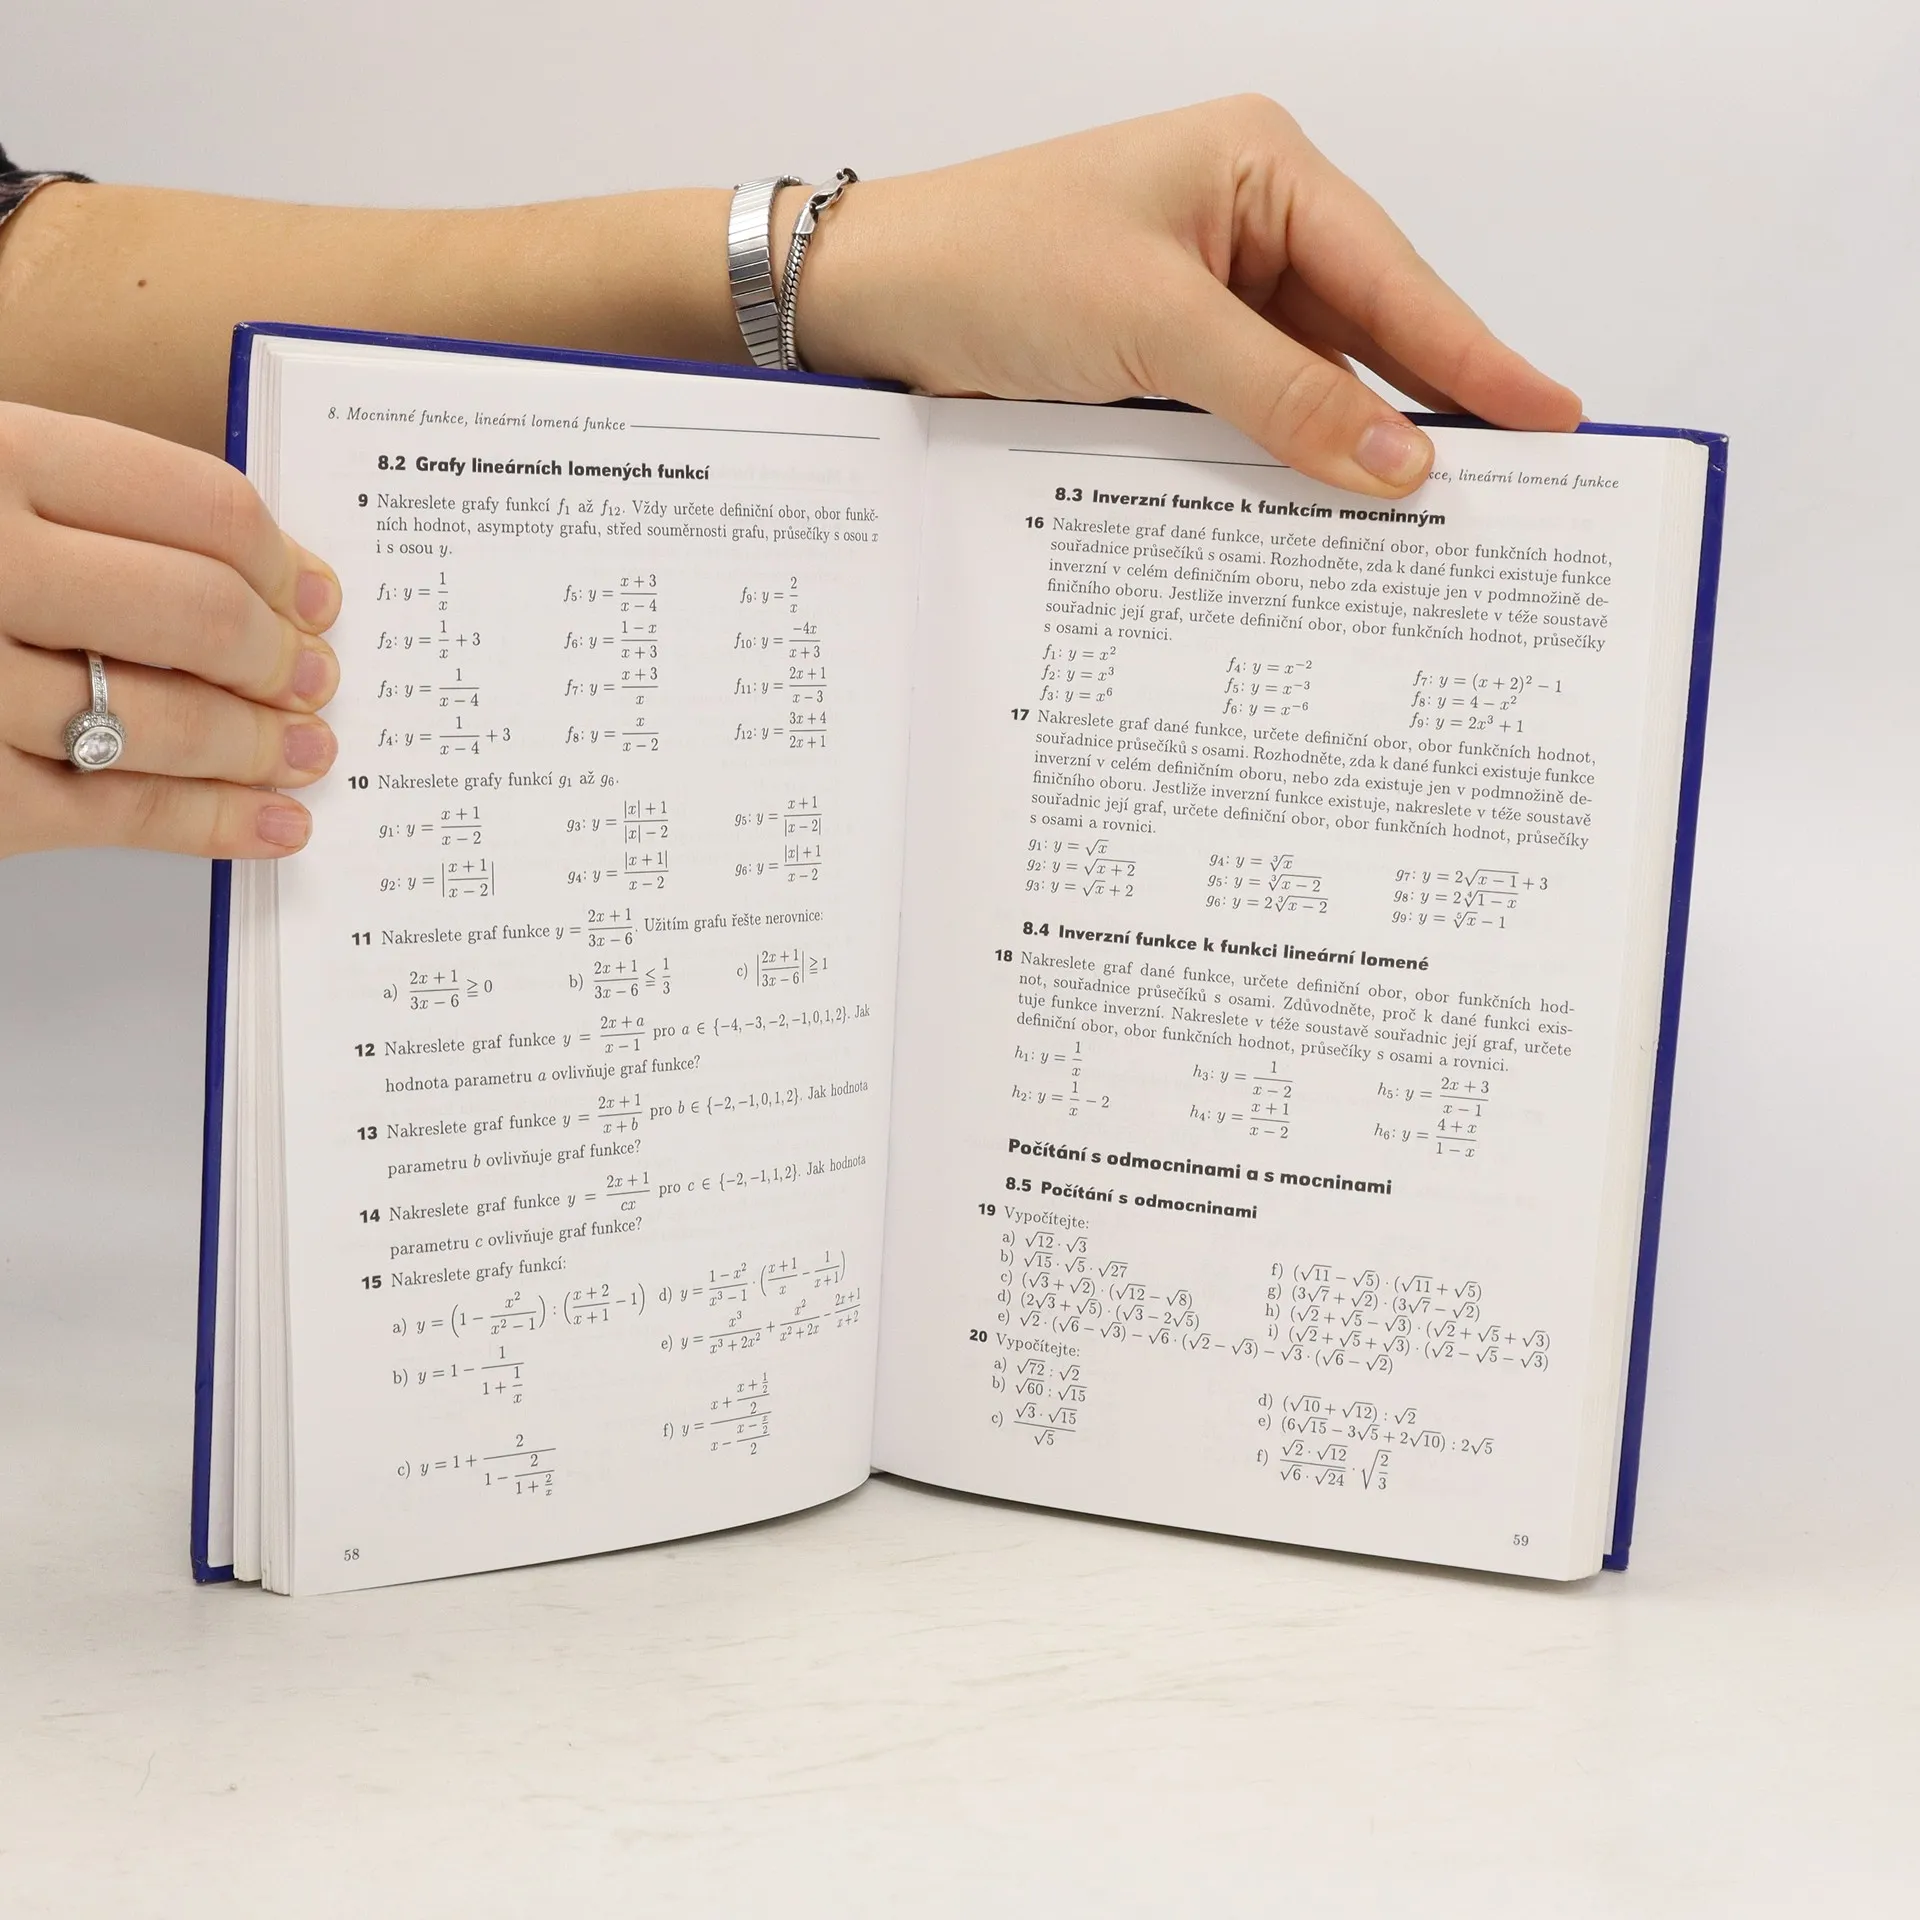 8. Mocninné funkce, lineární lomená funkce
8.2 Grafy lineárních lomených funkcí
9 Nakreslete grafy funkcí f₁ až f₁₂. Vždy určete definiční obor, obor funkč-
ních hodnot, asymptoty grafu, střed souměrnosti grafu, průsečíky s osou x
i s osou y.
f₁: y = 1/x f₅: y = (x + 3)/(x − 4) f₉: y = 2/x
f₂: y = 1/x + 3 f₆: y = (1 − x)/(x + 3) f₁₀: y = −4x/(x + 3)
f₃: y = 1/(x − 4) f₇: y = (x + 3)/x f₁₁: y = (2x + 1)/(x − 3)
f₄: y = 1/(x − 4) + 3 f₈: y = x/(x − 2) f₁₂: y = (3x + 4)/(2x + 1)
10 Nakreslete grafy funkcí g₁ až g₆.
g₁: y = (x + 1)/(x − 2) g₃: y = (|x| + 1)/(|x| − 2) g₅: y = (x + 1)/|x − 2|
g₂: y = |(x + 1)/(x − 2)| g₄: y = |x + 1|/(x − 2) g₆: y = (|x| + 1)/(x − 2)
11 Nakreslete graf funkce y = (2x + 1)/(3x − 6). Užitím grafu řešte nerovnice:
a) (2x + 1)/(3x − 6) ≧ 0 b) (2x + 1)/(3x − 6) ≦ 1/3 c) |(2x + 1)/(3x − 6)| ≧ 1
12 Nakreslete graf funkce y = (2x + a)/(x − 1) pro a ∈ {−4, −3, −2, −1, 0, 1, 2}. Jak
hodnota parametru a ovlivňuje graf funkce?
13 Nakreslete graf funkce y = (2x + 1)/(x + b) pro b ∈ {−2, −1, 0, 1, 2}. Jak hodnota
parametru b ovlivňuje graf funkce?
14 Nakreslete graf funkce y = (2x + 1)/(cx) pro c ∈ {−2, −1, 1, 2}. Jak hodnota
parametru c ovlivňuje graf funkce?
15 Nakreslete grafy funkcí:
a) y = (1 − x²/(x² − 1)) : ((x + 2)/(x + 1) − 1) d) y = (1 − x²)/(x³ − 1) · ((x + 1)/x − 1/(x + 1))
b) y = 1 − 1/(1 + 1/(1/x)) e) y = x³/(x³ + 2x²) + x²/(x² + 2x) − (2x + 1)/(x + 2)
c) y = 1 + 2/(1 − 2/(1 + 2/x)) f) y = (x + (x + 1/2)/2)/(x − (x − x/2)/2)
58
kce, lineární lomená funkce
8.3 Inverzní funkce k funkcím mocninným
16 Nakreslete graf dané funkce, určete definiční obor, obor funkčních hodnot,
souřadnice průsečíků s osami. Rozhodněte, zda k dané funkci existuje funkce
inverzní v celém definičním oboru, nebo zda existuje jen v podmnožině de-
finičního oboru. Jestliže inverzní funkce existuje, nakreslete v téže soustavě
souřadnic její graf, určete definiční obor, obor funkčních hodnot, průsečíky
s osami a rovnici.
f₁: y = x² f₄: y = x⁻² f₇: y = (x + 2)² − 1
f₂: y = x³ f₅: y = x⁻³ f₈: y = 4 − x²
f₃: y = x⁶ f₆: y = x⁻⁶ f₉: y = 2x³ + 1
17 Nakreslete graf dané funkce, určete definiční obor, obor funkčních hodnot,
souřadnice průsečíků s osami. Rozhodněte, zda k dané funkci existuje funkce
inverzní v celém definičním oboru, nebo zda existuje jen v podmnožině de-
finičního oboru. Jestliže inverzní funkce existuje, nakreslete v téže soustavě
souřadnic její graf, určete definiční obor, obor funkčních hodnot, průsečíky
s osami a rovnici.
g₁: y = √x g₄: y = ∛x g₇: y = 2√(x − 1) + 3
g₂: y = √(x + 2) g₅: y = ∛(x − 2) g₈: y = 2∜(1 − x)
g₃: y = √x + 2 g₆: y = 2∛(x − 2) g₉: y = ⁵√x − 1
8.4 Inverzní funkce k funkci lineární lomené
18 Nakreslete graf dané funkce, určete definiční obor, obor funkčních hod-
not, souřadnice průsečíků s osami. Zdůvodněte, proč k dané funkci exis-
tuje funkce inverzní. Nakreslete v téže soustavě souřadnic její graf, určete
definiční obor, obor funkčních hodnot, průsečíky s osami a rovnici.
h₁: y = 1/x h₃: y = 1/(x − 2) h₅: y = (2x + 3)/(x − 1)
h₂: y = 1/x − 2 h₄: y = (x + 1)/(x − 2) h₆: y = (4 + x)/(1 − x)
Počítání s odmocninami a s mocninami
8.5 Počítání s odmocninami
19 Vypočítejte:
a) √12 · √3
b) √15 · √5 · √27 f) (√11 − √5) · (√11 + √5)
c) (√3 + √2) · (√12 − √8) g) (3√7 + √2) · (3√7 − √2)
d) (2√3 + √5) · (√3 − 2√5) h) (√2 + √5 − √3) · (√2 + √5 + √3)
e) √2 · (√6 − √3) − √6 · (√2 − √3) − √3 · (√6 − √2) i) (√2 + √5 + √3) · (√2 − √5 − √3)
20 Vypočítejte:
a) √72 : √2 d) (√10 + √12) : √2
b) √60 : √15 e) (6√15 − 3√5 + 2√10) : 2√5
c) (√3 · √15)/√5 f) (√2 · √12)/(√6 · √24) · √(2/3)
59